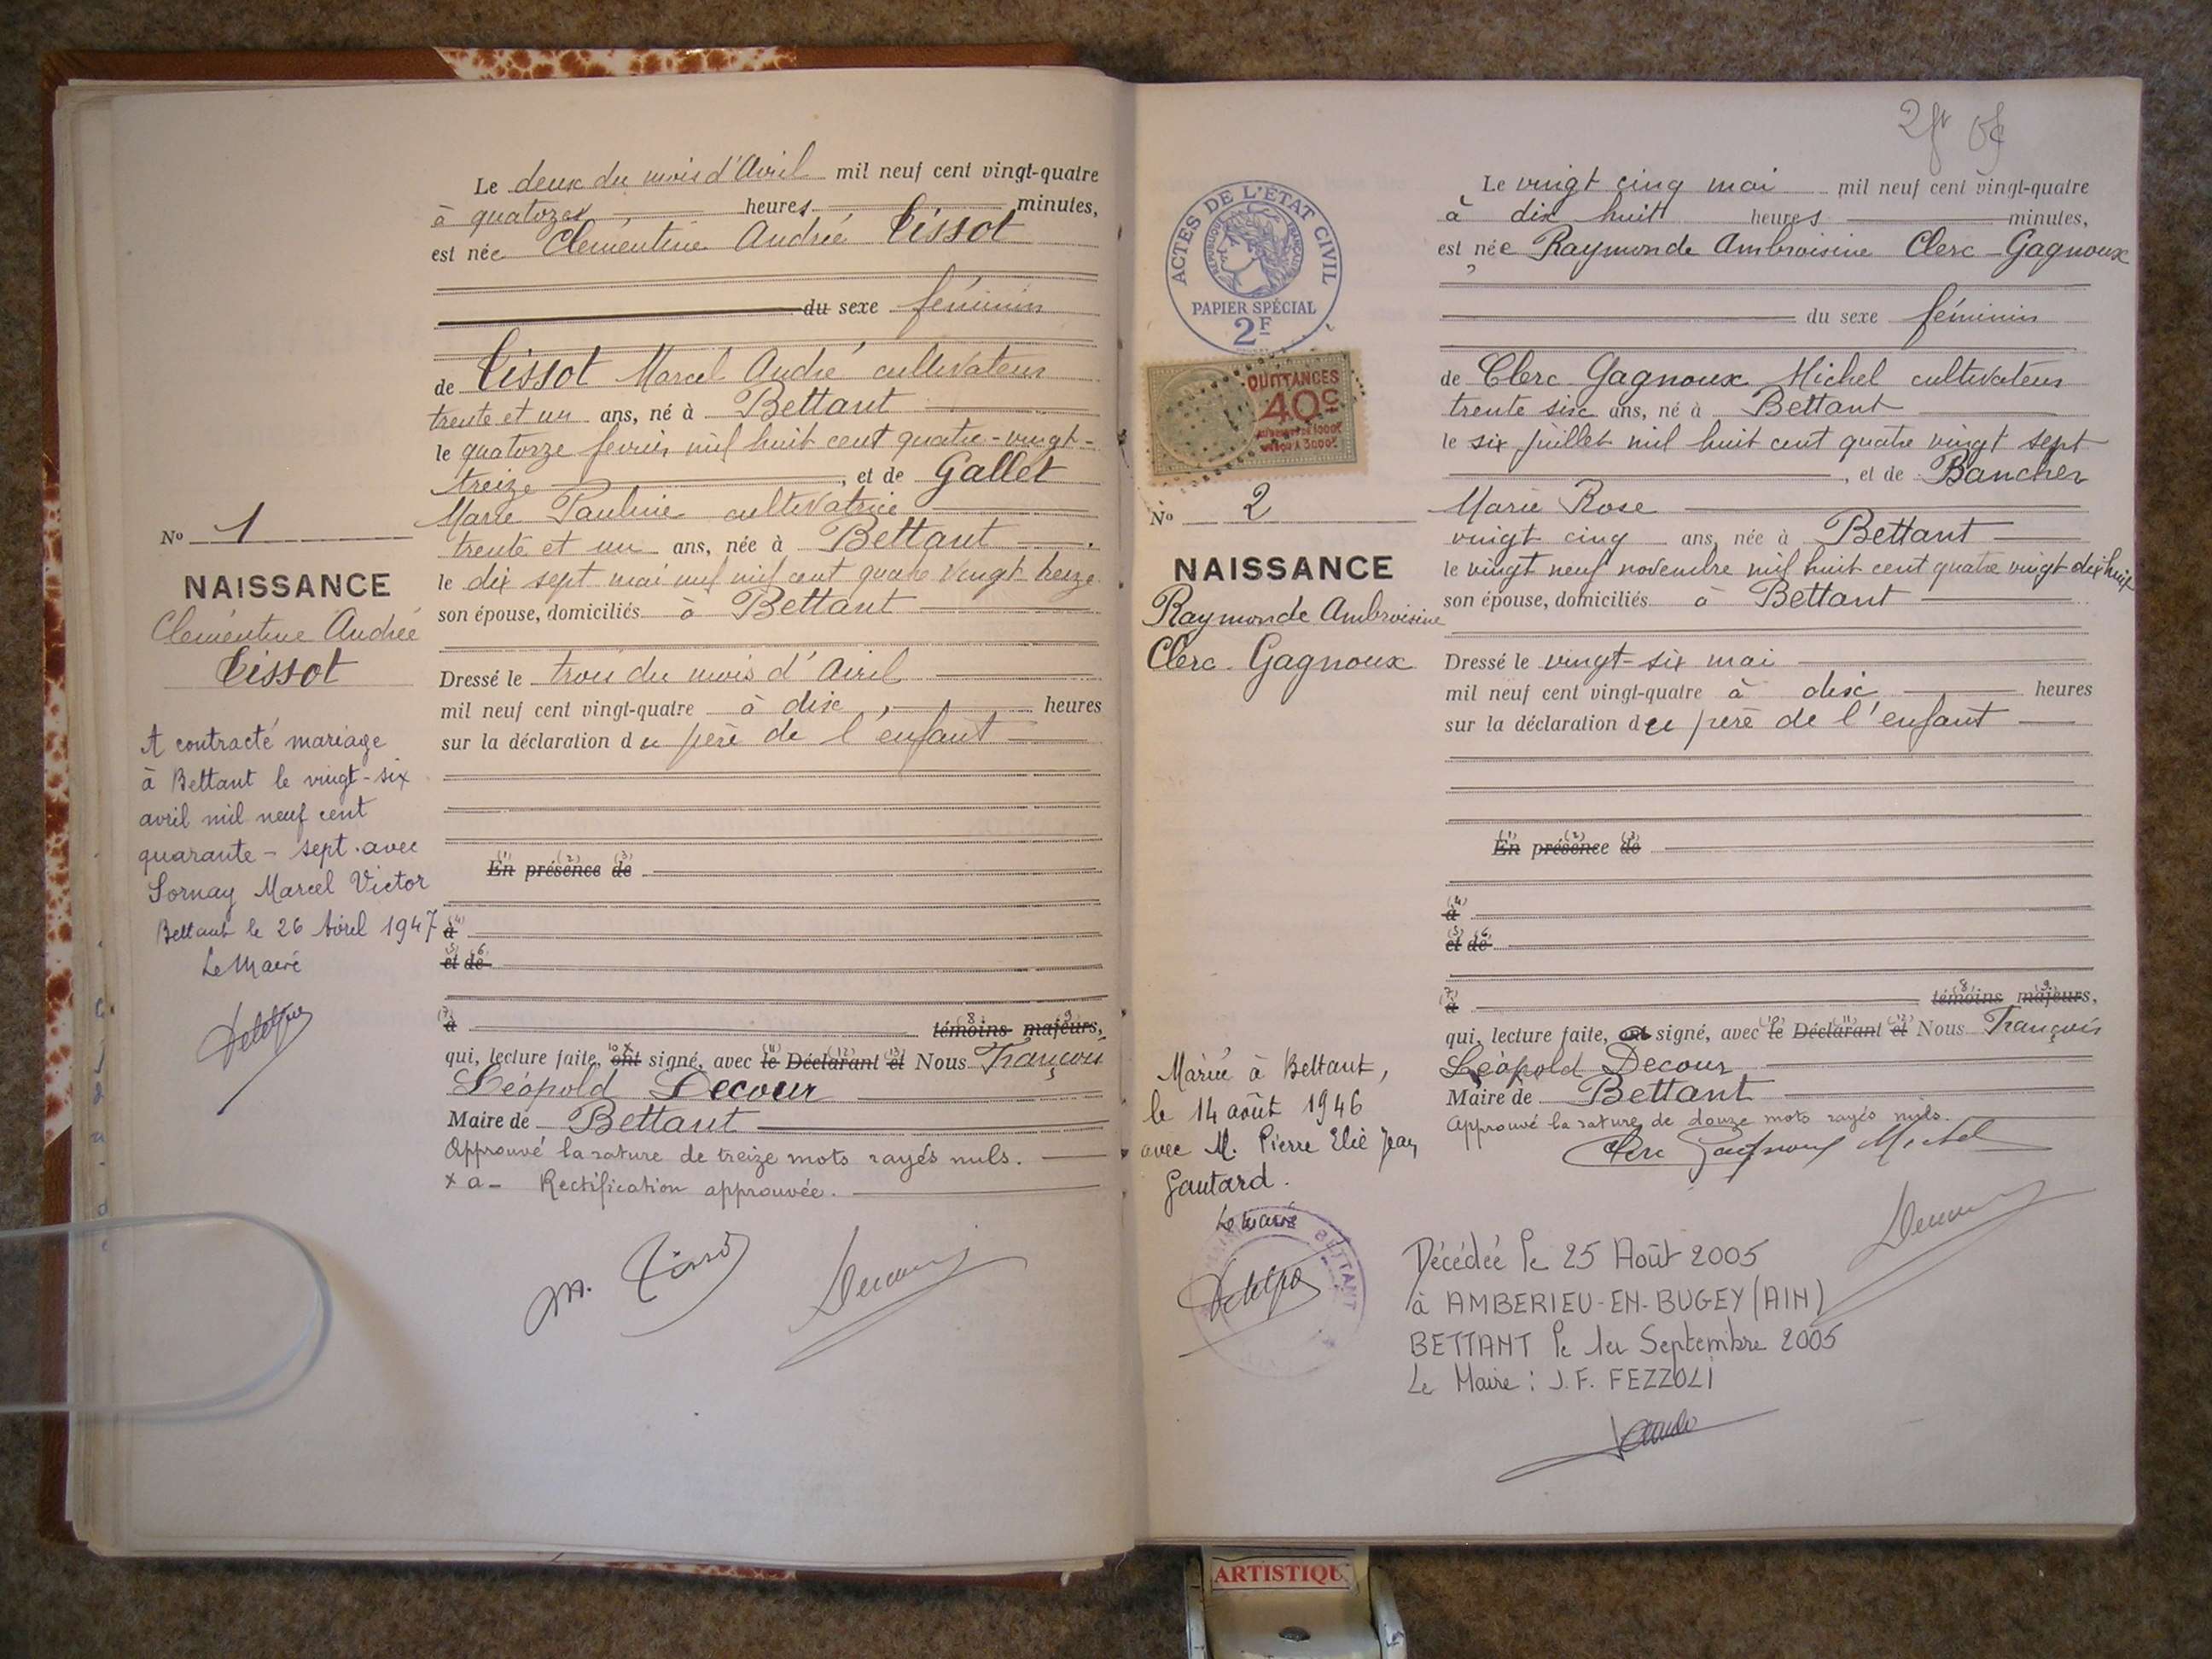 Le deux du mois d'Avril mil neuf cent vingt-quatre
à quatorze heures minutes,
est née Clémentine Andrée Tissot
du sexe féminin
de Tissot Marcel André cultivateur
trente et un ans, né à Bettant
le quatorze fevrier mil huit cent quatre-vingt-
treize, et de Gallet
Marie Pauline cultivatrice
trente et un ans, née à Bettant
le dix sept mai mil cent quatre vingt treize
son épouse, domiciliés à Bettant
Dressé le trois du mois d'Avril
mil neuf cent vingt-quatre à dix, heures
sur la déclaration du père de l'enfant
(1) (2) (3)
En présence de
(4)
à
(5) (6)
et de
(7) (8) (9)
à témoins majeurs,
10 x (11) (12) (13)
qui, lecture faite, ont signé, avec le Déclarant et Nous François
Léopold Decour
Maire de Bettant
Approuvé la rature de treize mots rayés nuls.
x a - Rectification approuvée.
M. Tissot
Decour
No 1
NAISSANCE
Clémentine Andrée
Tissot
A contracté mariage
à Bettant le vingt-six
avril mil neuf cent
quarante-sept avec
Sornay Marcel Victor
Bettant le 26 Avril 1947
Le Maire
2fr
Le vingt cinq mai mil neuf cent vingt-quatre
à dix huit heures minutes,
est née Raymonde Ambroisine Clerc-Gagnoux
du sexe féminin
de Clerc Gagnoux Michel cultivateur
trente six ans, né à Bettant
le six juillet mil huit cent quatre vingt sept
, et de Bancher
Marie Rose
vingt cinq ans, née à Bettant
le vingt neuf novembre mil huit cent quatre vingt dix huit
son épouse, domiciliés à Bettant
Dressé le vingt-six mai
mil neuf cent vingt-quatre à dix heures
sur la déclaration du père de l'enfant
(1) (2) (3)
En présence de
(4)
à
(5) (6)
et de
(7) (8) 9
à témoins majeurs,
(10) (11) (12)
qui, lecture faite, ont signé, avec le Déclarant et Nous François
Léopold Decour
Maire de Bettant
Approuvé la rature de douze mots rayés nuls.
Clerc Gagnoux Michel
Decour
ACTES DE L'ÉTAT CIVIL
RÉPUBLIQUE FRANÇAISE
PAPIER SPÉCIAL
2F
QUITTANCES
40c
No 2
NAISSANCE
Raymonde Ambroisine
Clerc-Gagnoux
Mariée à Bettant,
le 14 août 1946
avec M. Pierre Elie Jean
Gautard.
Le Maire
BETTANT
Décédée le 25 Août 2005
à AMBERIEU-EN-BUGEY (AIN)
BETTANT le 1er Septembre 2005
Le Maire : J.F. FEZZOLI
ARTISTIQU